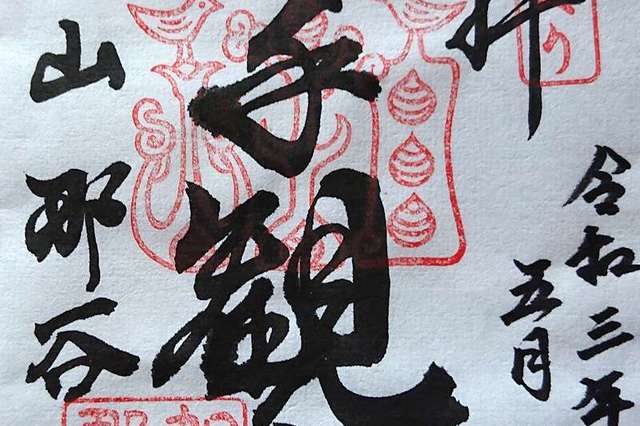 拝
令和三年
五月
手観
山那谷